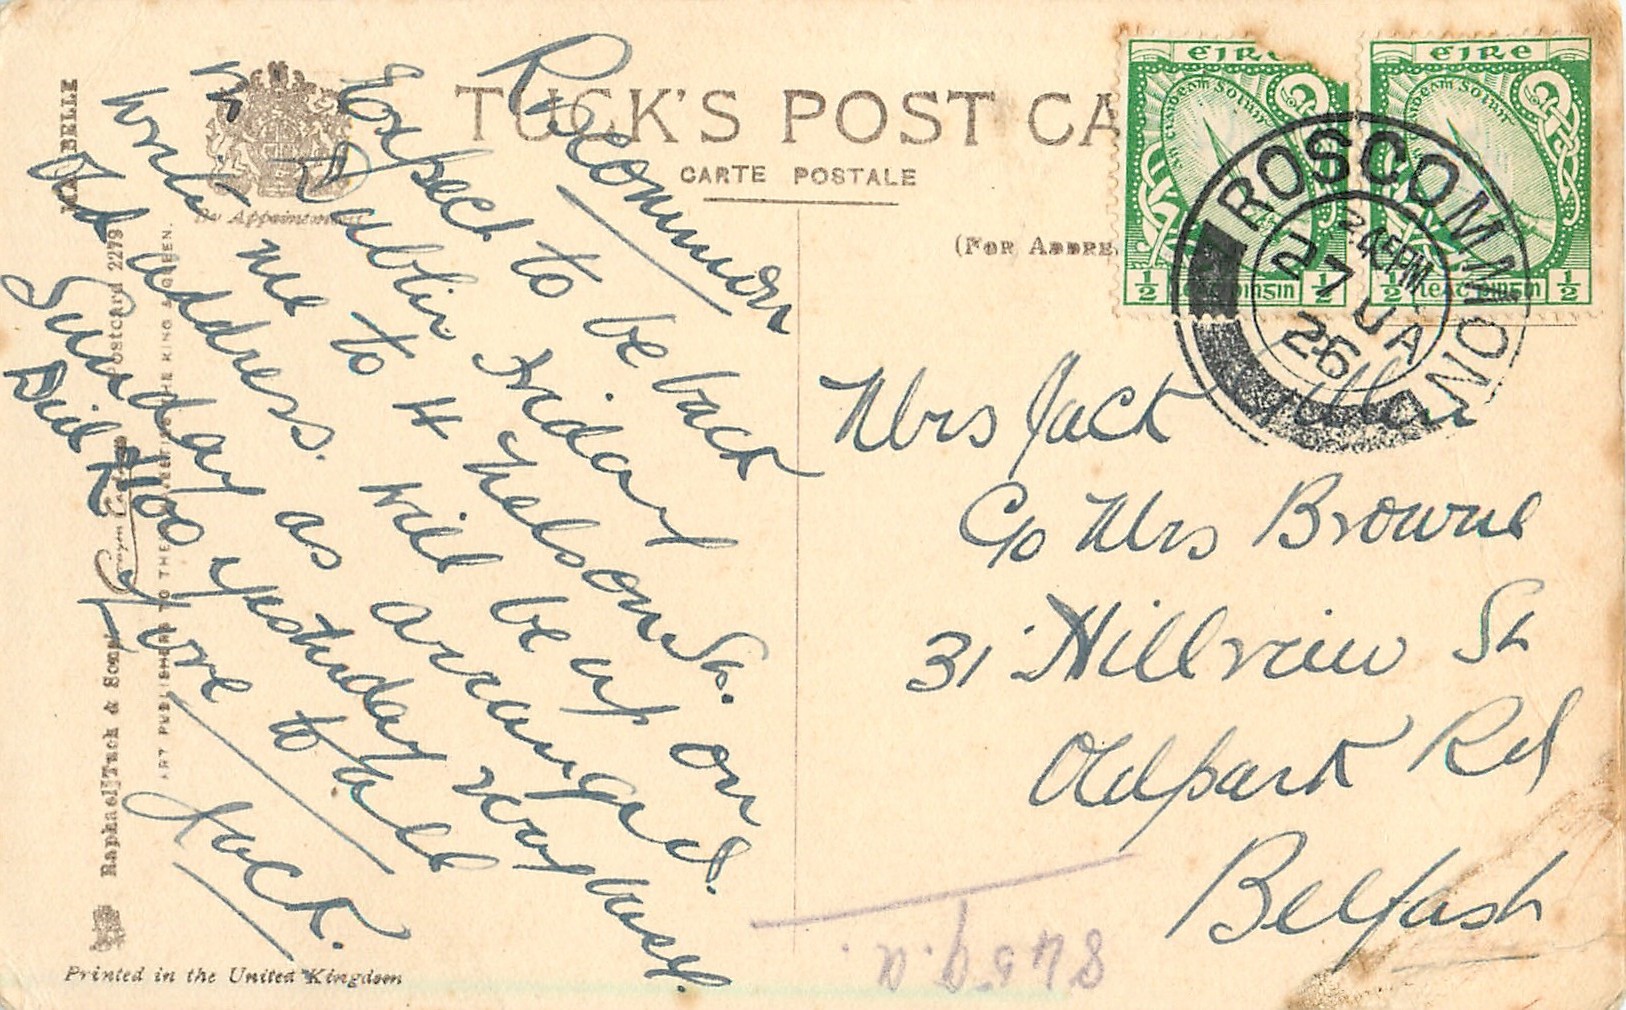 TUCK'S POST CA
CARTE POSTALE
(FOR ADDRE
By Appointment
BELLE
Postcard 2279
Raphael Tuck & Sons
ART PUBLISHERS TO THE KING & QUEEN.
Printed in the United Kingdom
Roscommon
Expect to be back
in Dublin Friday
write me to 4 Nelson St.
Old address. Will be up on
Sunday as arranged.
Did 400 yesterday
to hell
Love
Jack.
éire
éire
½ ½
½ ½
ROSCOMMON
2.45PM
27 JA
26
Mrs Jack
C/o Mrs Browne
31 Hillview St
Oldpark Rd
Belfast